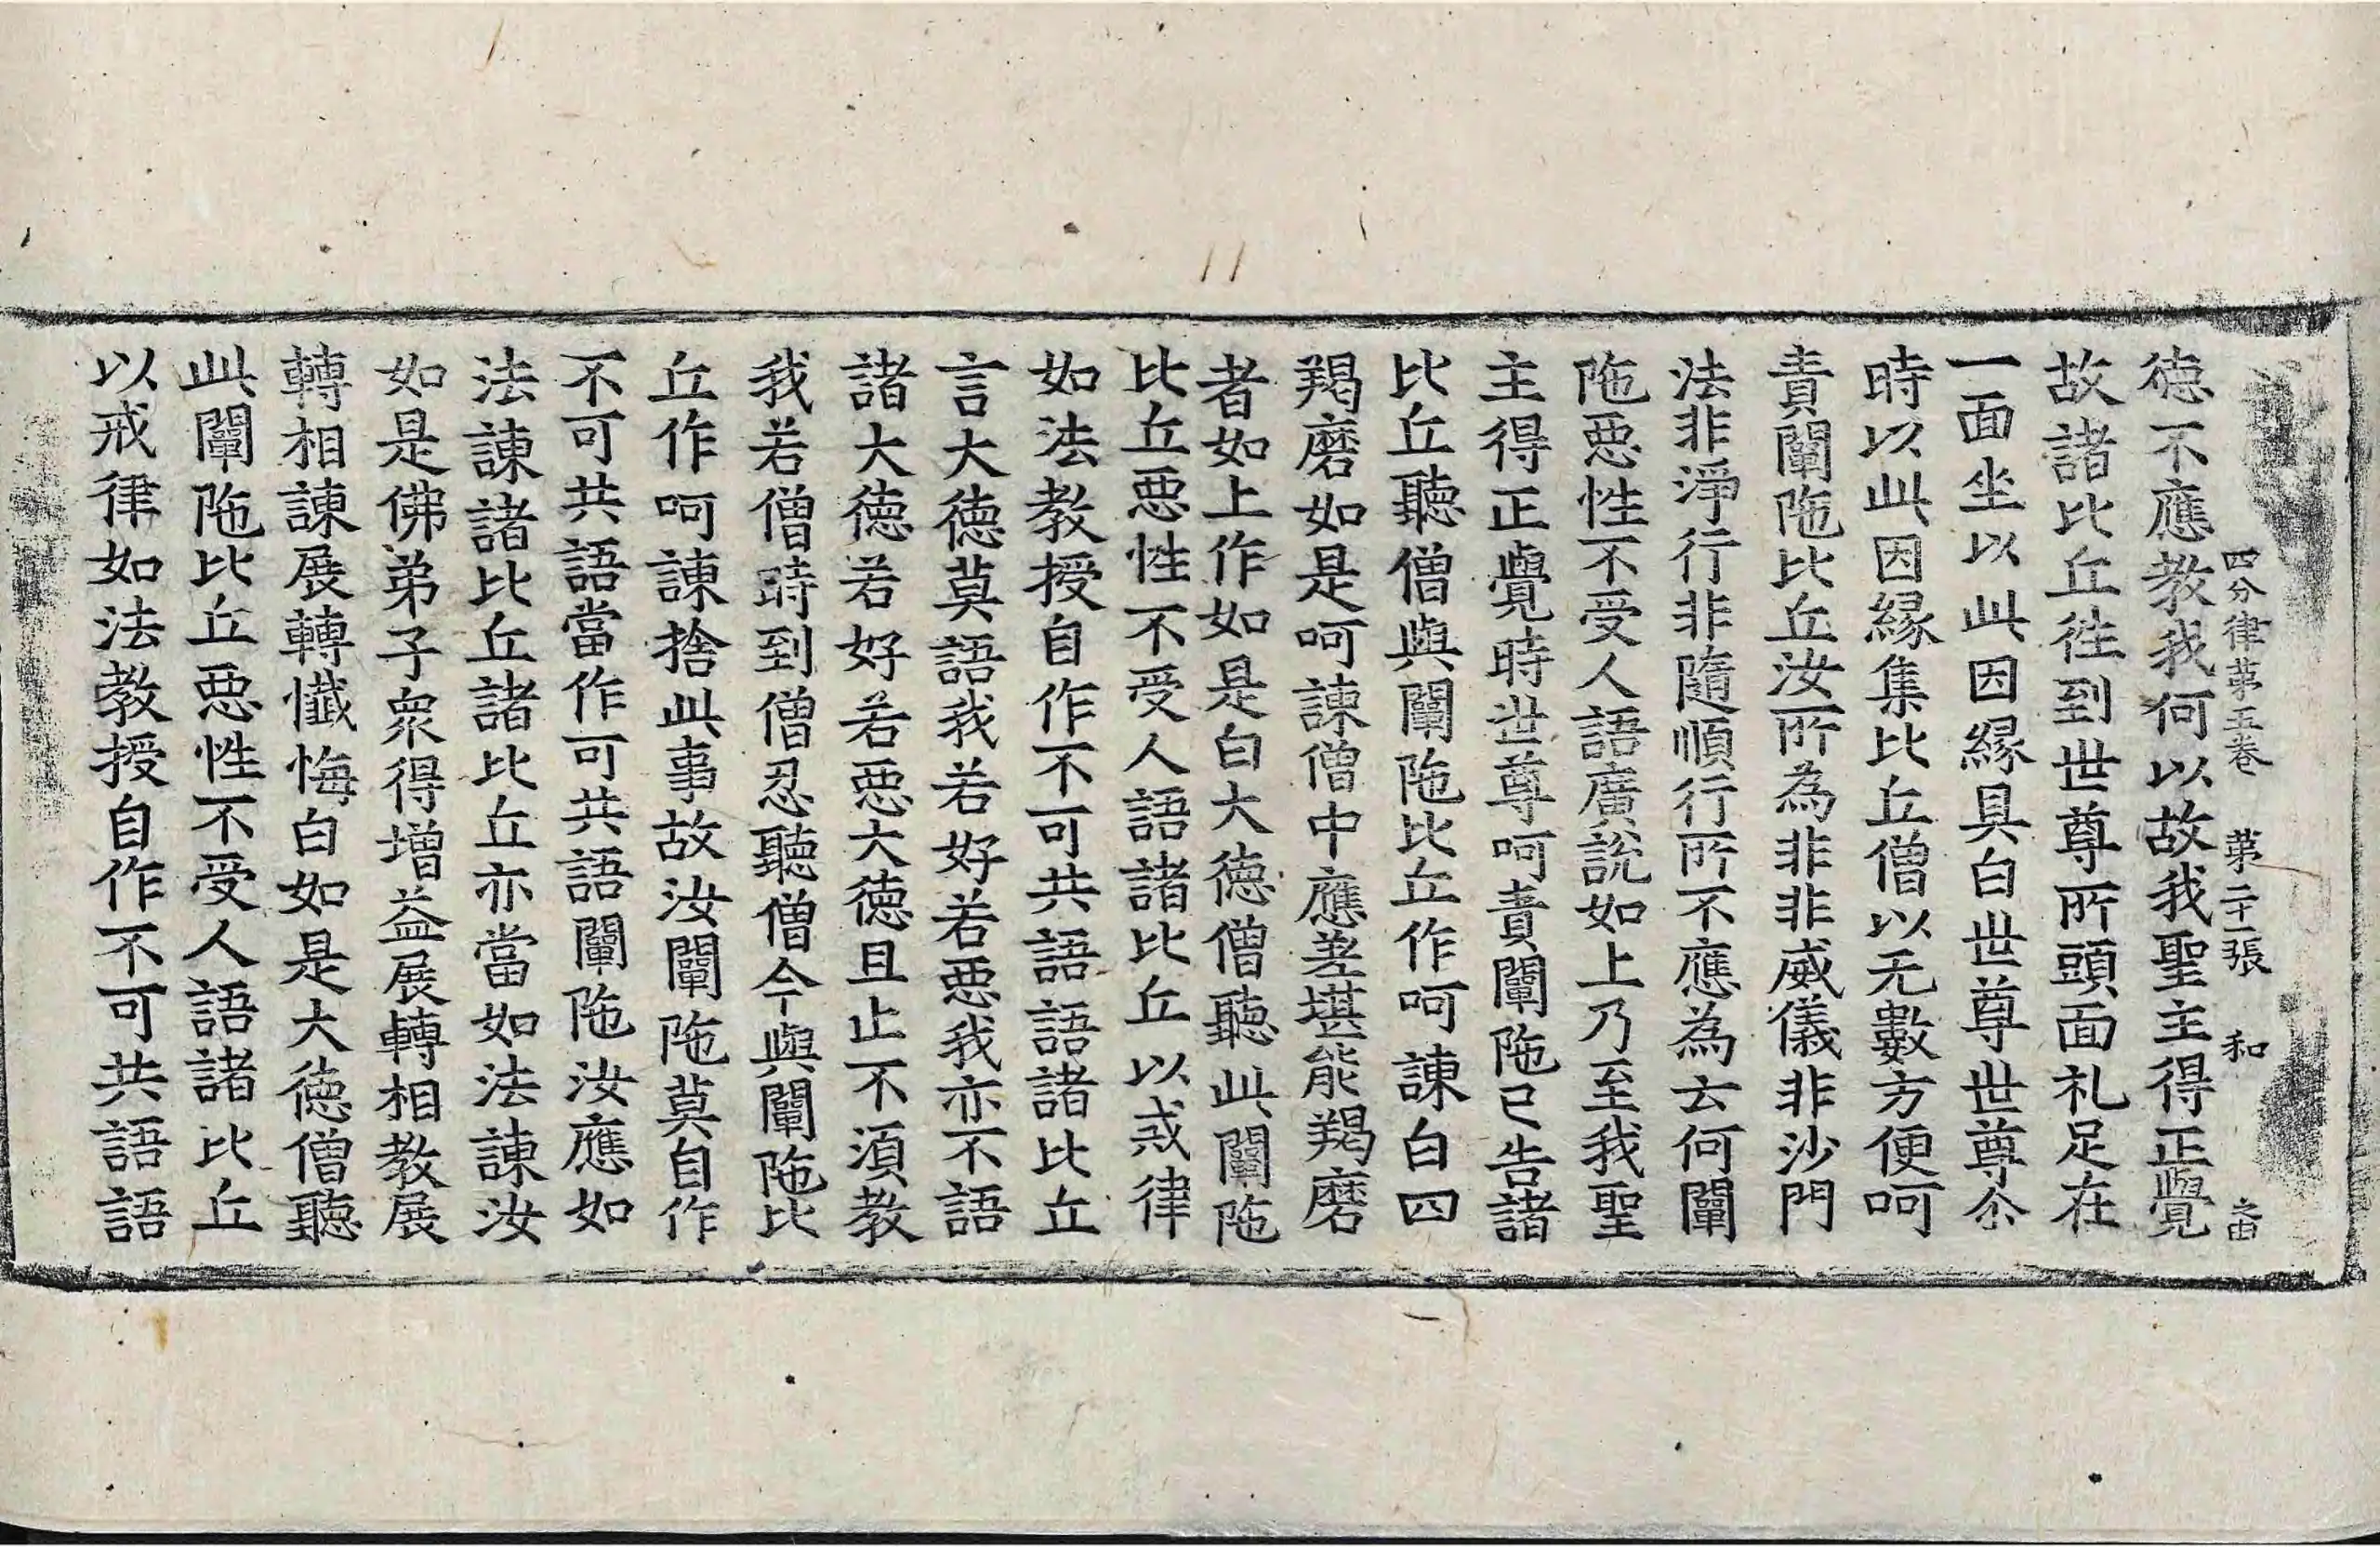 四分律第五卷 第二十一張 和
德不應教我何以故我聖主得正覺
故諸比丘徃到世尊所頭面礼足在
一面坐以此因縁具白世尊世尊尒
時以此因縁集比丘僧以无數方便呵
責闡陁比丘汝所為非非威儀非沙門
法非淨行非隨順行所不應為云何闡
陁惡性不受人語廣說如上乃至我聖
主得正覺時世尊呵責闡陁已告諸
比丘聽僧與闡陁比丘作呵諫白四
羯磨如是呵諫僧中應差堪能羯磨
者如上作如是白大德僧聽此闡陁
比丘惡性不受人語諸比丘以戒律
如法教授自作不可共語語諸比丘
言大德莫語我若好若惡我亦不語
諸大德若好若惡大德且止不須教
我若僧時到僧忍聽僧今與闡陁比
丘作呵諫捨此事故汝闡陁莫自作
不可共語當作可共語闡陁汝應如
法諫諸比丘諸比丘亦當如法諫汝
如是佛弟子衆得增益展轉相教展
轉相諫展轉懺悔白如是大德僧聽
此闡陁比丘惡性不受人語諸比丘
以戒律如法教授自作不可共語語